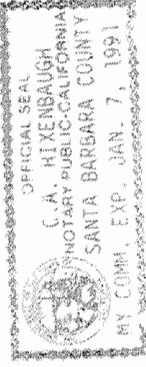 OFFICIAL SEAL
C. A. HITENBAUGH
NOTARY PUBLIC-CALIFORNIA
SANTA BARBARA COUNTY
MY COMM. EXP. JAN. 7, 1991